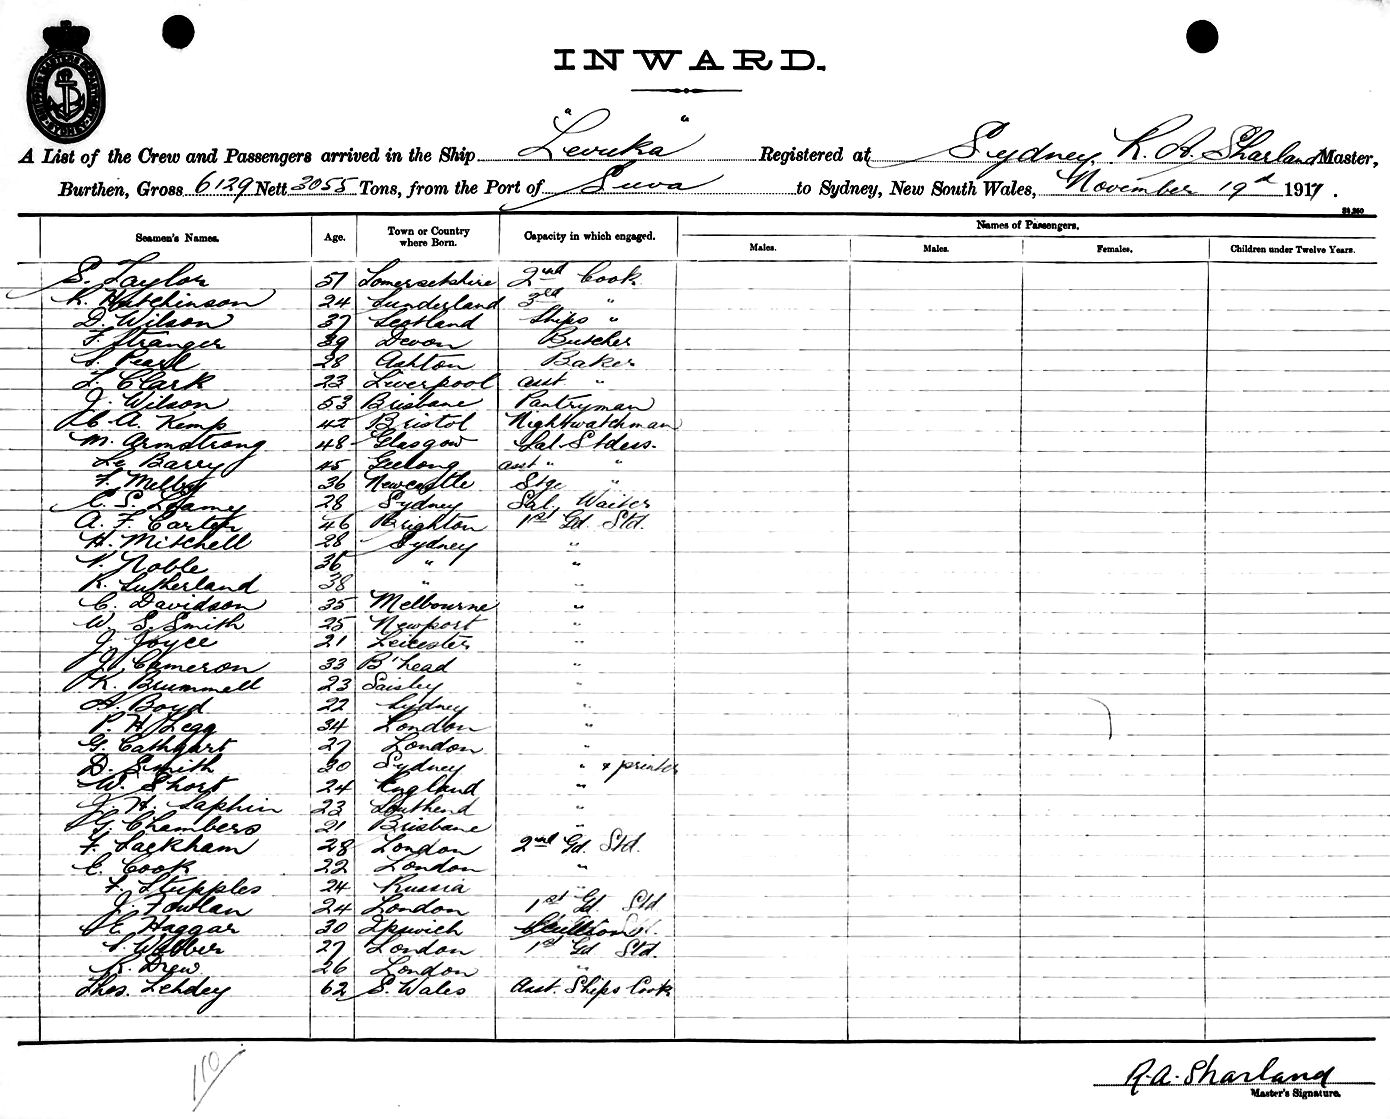 SHIPPING MASTERS DEPARTMENT
SYDNEY
INWARD.
A List of the Crew and Passengers arrived in the Ship "Levuka" Registered at Sydney, R. A. Sharland Master,
Burthen, Gross 6129 Nett 3055 Tons, from the Port of Suva to Sydney, New South Wales, November 19d 1917.
Seamen's Names. Age. Town or Country where Born. Capacity in which engaged. Names of Passengers.
Males. Males. Females. Children under Twelve Years.
S. Taylor 51 Somersetshire 2nd Cook
R. Hutchinson 24 Sunderland 3rd "
D. Wilson 37 Scotland Ships "
F. Stranger 39 Devon Butcher
S. Pearl 28 Ashton Baker
L. Clark 23 Liverpool asst "
J. Wilson 53 Brisbane Pantryman
A. Kemp 42 Bristol Nightwatchman
M. Armstrong 48 Glasgow Sal. Stdess.
Le Barry 45 Geelong asst " "
F. Melby 36 Newcastle Stge "
C. S. 28 Sydney Sal. Waiter
A. F. Carter 46 Brighton 1st Gd. Std.
H. Mitchell 28 Sydney "
N. Noble 36 " "
R. Sutherland 38 " "
C. Davidson 35 Melbourne "
W. S. Smith 25 Newport "
J. Joyce 21 Leicester "
J. Cameron 33 B'head "
R. Brummell 23 "
A. Boyd 22 Sydney "
P. H. Legg 34 London "
G. Cathcart 27 London "
D. Smith 20 Sydney " & printer
W. Short 24 England "
J. H. Saphin 23 Southend "
G. Chambers 21 Brisbane "
F. Packham 28 London 2nd Gd. Std.
E. Cook 22 London "
F. Stupples 24 Russia "
J. Fowlan 24 London 1st Gd Std
E. Haggar 30 Ipswich
S. Webber 27 London 1st Gd Std.
R. Drew 26 London "
Thos. Lehdey 62 S. Wales Asst. Ships Cook
110
R. A. Sharland
Master's Signature.